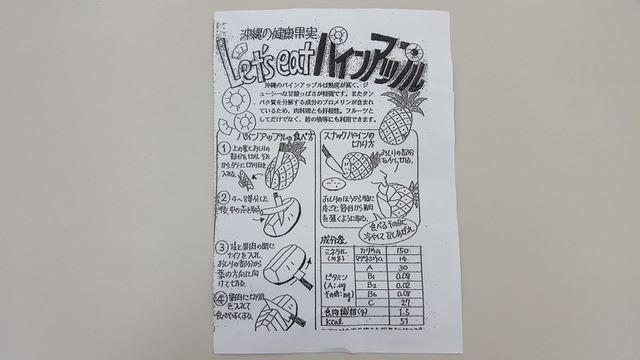 沖縄の健康果実
Let's eat パインアップル
沖縄のパインアップルは熟度が高く、ジ
ューシーな甘酸っぱさが特徴です。またタン
パク質を分解する成分のブロメリンが含まれ
ているため、肉料理とも好相性。フルーツと
してだけでなく、 の物等にも利用できます。
パインアップルの食べ方
① 上の葉とおしりの
部分を切り、
からタテに切り目を
入れる。
② 4〜8等分した
後、中の芯を取る。
③ 皮と果肉の間に
ナイフを入れ、
おしりの部分から
葉の方向に向
けて切る。
④ 果肉に切り目
を入れて
食べやすくする。
スナックパインの
切り方
おしりの部分
を少し切る。
おしりのほうから順に
皮ごと節目から果肉
を強くように取る。
食べるその前に
冷やして召しあがれ。
成分表
ミネラル
(mg)
カリウム 150
マグネシウム 14
ビタミン
A 30
B₁ 0.08
B₂ 0.02
B₆ 0.08
C 27
食物繊維(g) 1.5
kcal 51